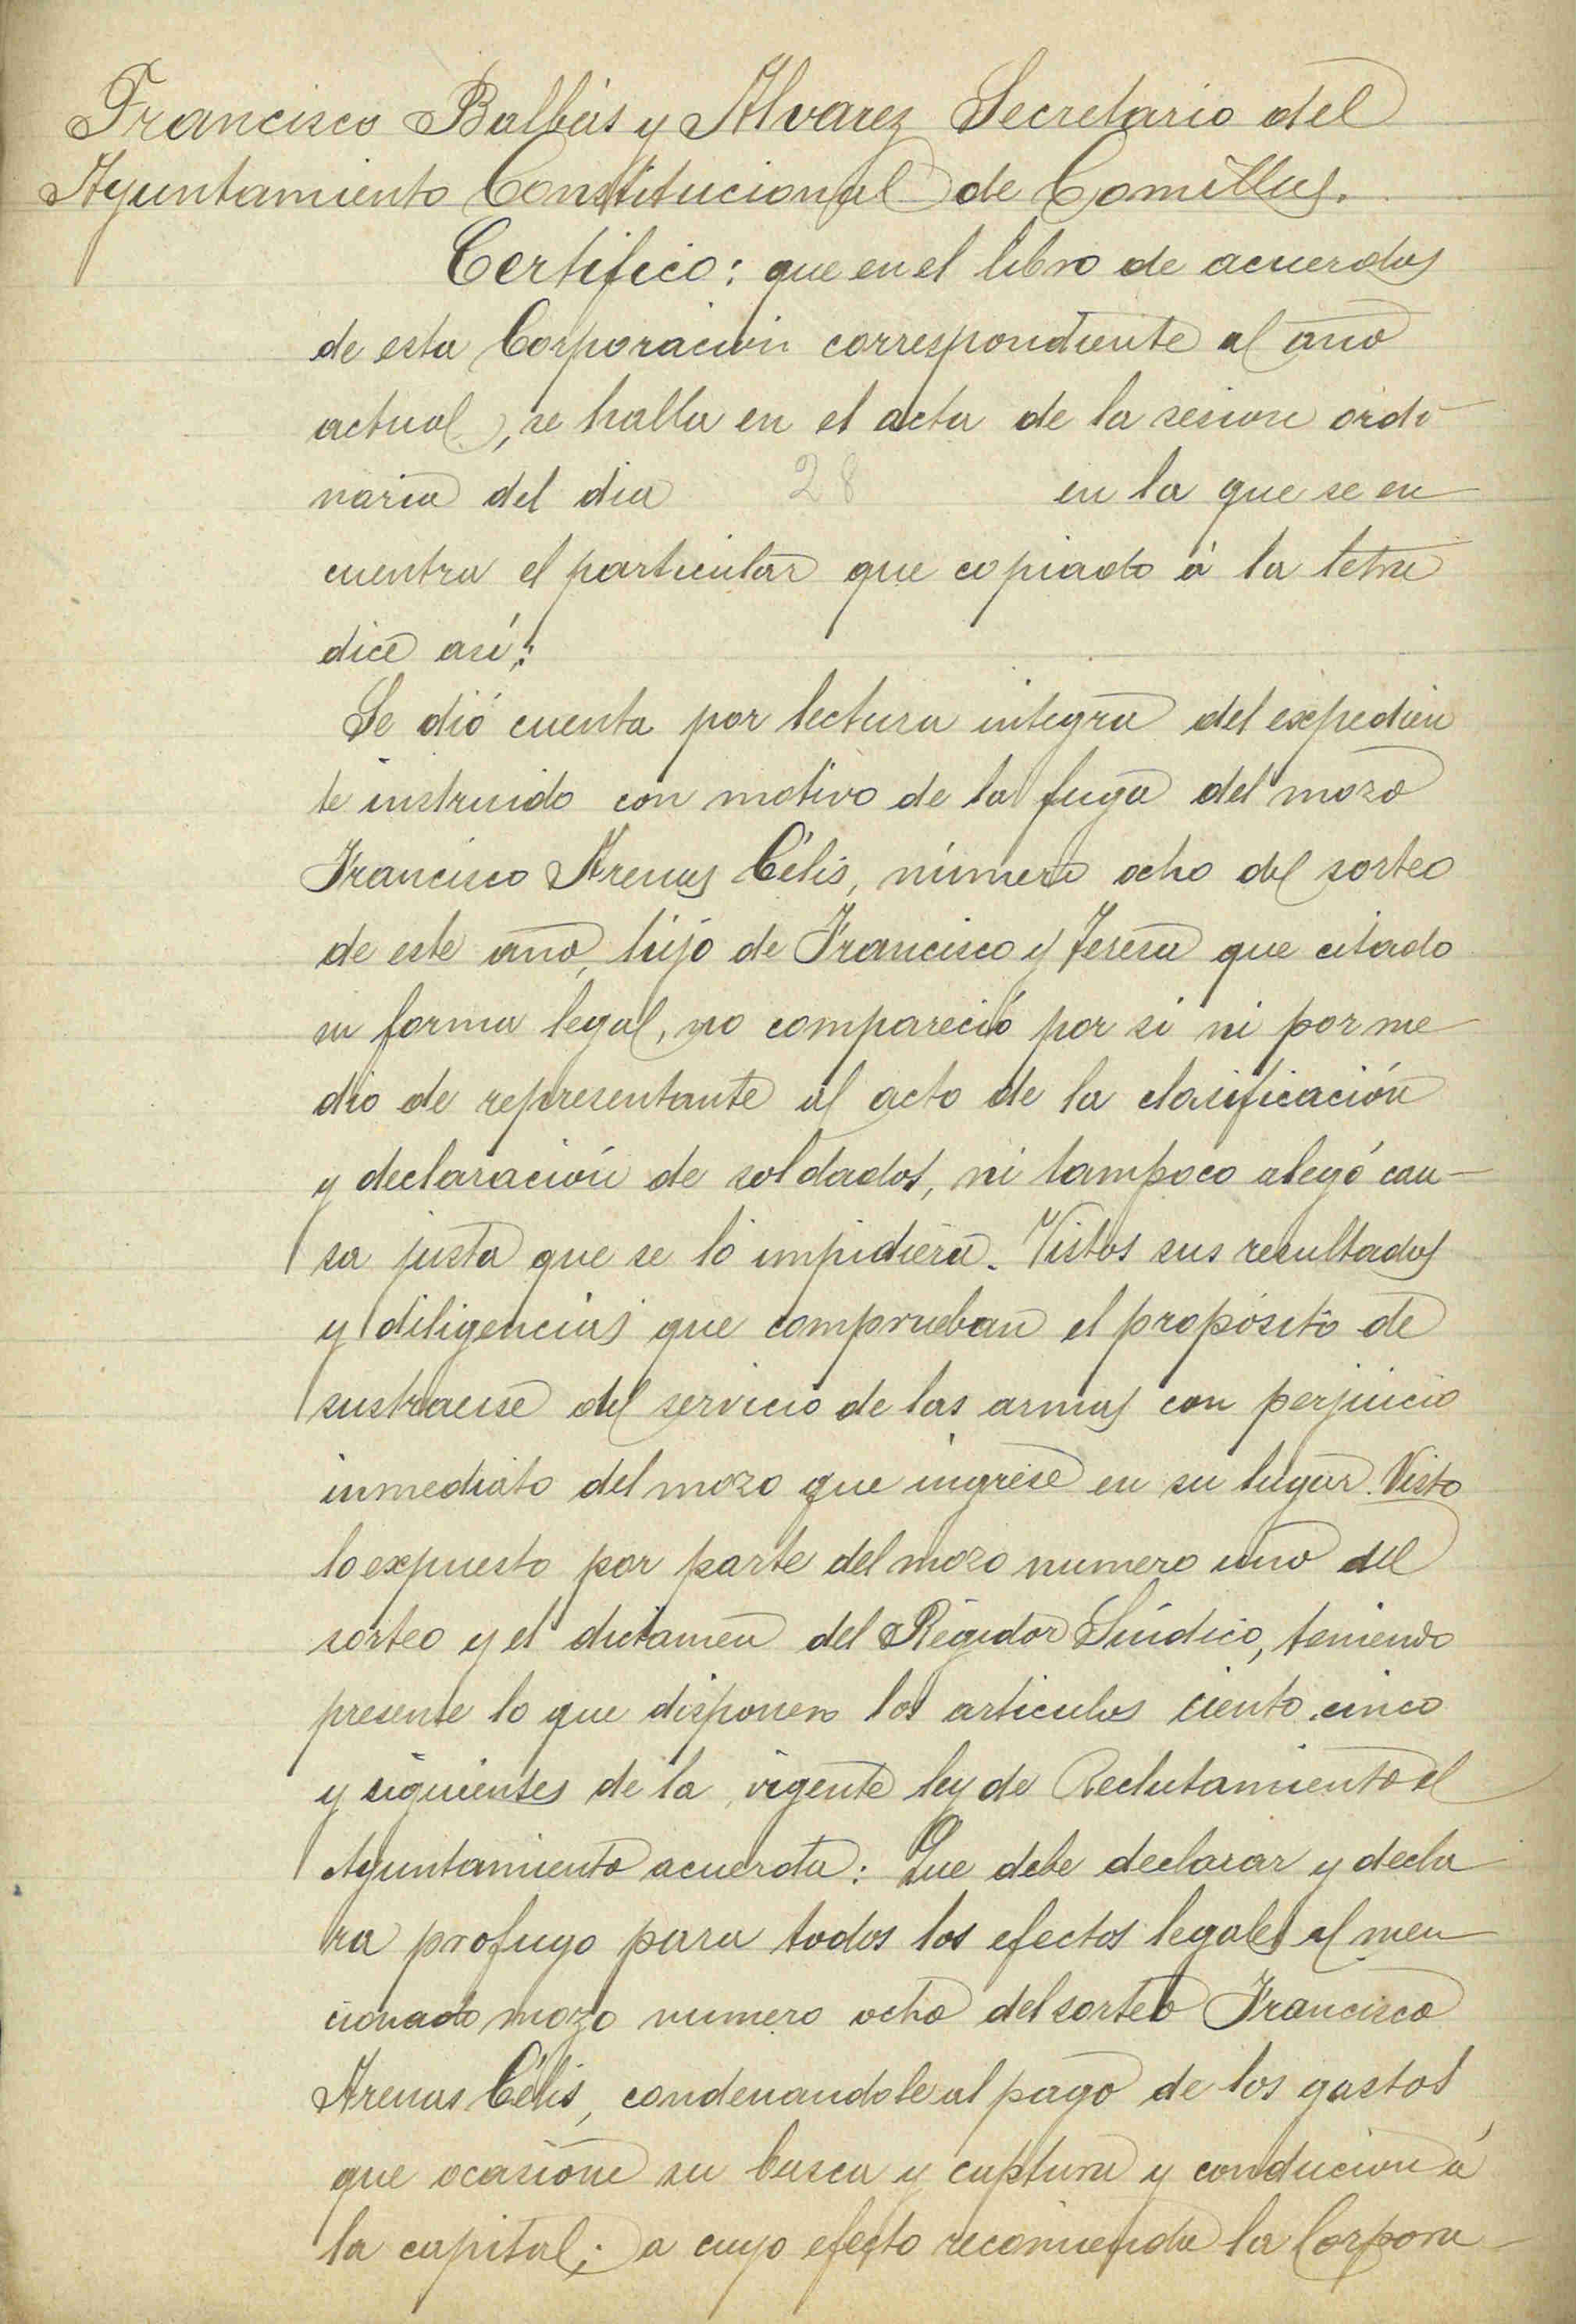 Francisco Balbás y Alvarez Secretario del
Ayuntamiento Constitucional de Comillas.
Certifico: que en el libro de acuerdos
de esta Corporación correspondiente al año
actual, se halla en el acta de la sesion ordi
naria del dia 28 en la que se en
cuentra el particular que copiado á la letra
dice así:
Se dió cuenta por lectura integra del expedien
te instruido con motivo de la fuga del mozo
Francisco Arenas Célis, número ocho del sorteo
de este año, hijo de Francisco y Teresa que citado
en forma legal, no compareció por si ni por me
dio de representante al acto de la clasificación
y declaración de soldados, ni tampoco alegó cau-
sa justa que se lo impidiera. Vistos sus resultados
y diligencias que comprueban el propósito de
sustraerse del servicio de las armas con perjuicio
inmediato del mozo que ingrese en su lugar. Visto
lo expuesto por parte del mozo numero uno del
sorteo y el dictamen del Regidor Síndico, teniendo
presente lo que disponen los articulos ciento cinco
y siguientes de la vigente ley de Reclutamiento el
Ayuntamiento acuerda: Que debe declarar y decla
ra profugo para todos los efectos legales al men
cionado mozo numero ocho del sorteo Francisco
Arenas Célis, condenandole al pago de los gastos
que ocasione su busca y captura y conducion á
la capital; a cuyo efecto recomienda la Corpora-